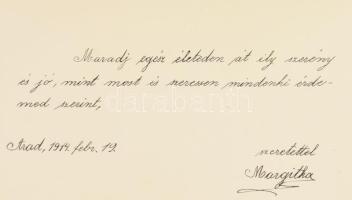 Maradj egész életeden át ily szerény
és jó, mint most is szeressen mindenki érde-
med szerint,
darabanth
Arad, 1914. febr. 19.
szeretettel
Margitka